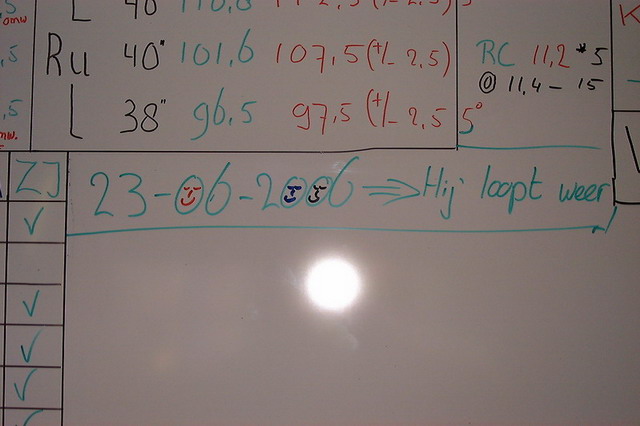 L 40" 110,8
Ru 40" 101,6 107,5 (+/- 2,5)
L 38" 96,5 97,5 (+/- 2,5 5°
RC 11,2 * 5
@ 11,4 - 15
ZJ
23-06-2006 => Hij loopt weer